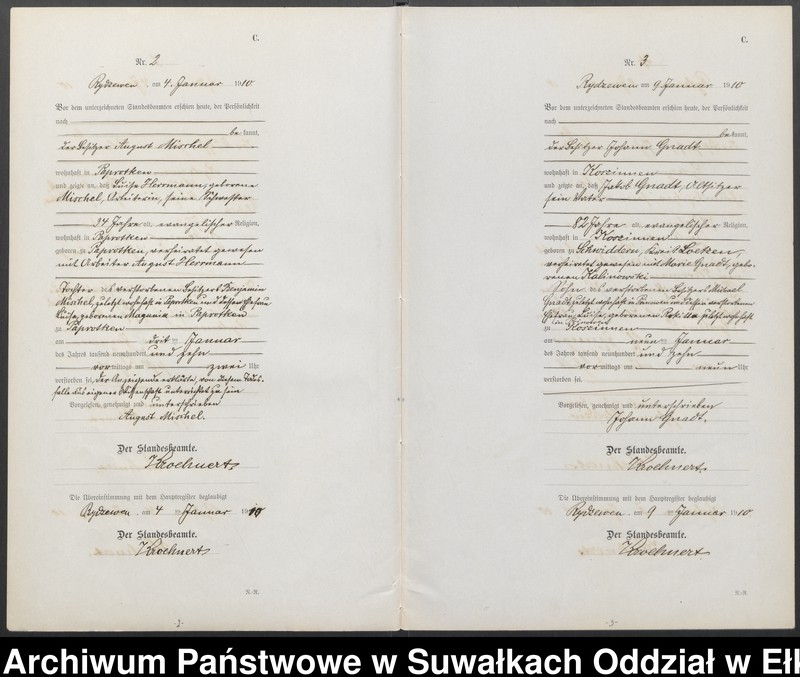 C.
Nr. 2
Rydzewen am 4. Januar 1910
Vor dem unterzeichneten Standesbeamten erschien heute, der Persönlichkeit
nach
be kannt,
der Besitzer August Mischel
wohnhaft in Paprotken
und zeigte an, daß Luise Herrmann, geborene
Mischel, Arbeiterin, seine Schwester
34 Jahre alt, evangelischer Religion,
wohnhaft in Paprotken
geboren zu Paprotken, verheiratet gewesen
mit Arbeiter August Herrmann
Tochter des verstorbenen Besitzers Benjamin
Mischel, zuletzt wohnhaft in Paprotken und dessen Ehefrau
Luise, geborenen in Paprotken
zu Paprotken
am drei ten Januar
des Jahres tausend neunhundert und zehn
vor mittags um zwei Uhr
verstorben sei, der Anzeigende erklärte, von diesem Todes-
falle aus eigener Wissenschaft unterrichtet zu sein
Vorgelesen, genehmigt und unterschrieben
August Mischel.
Der Standesbeamte.
Kroehnert
Die Übereinstimmung mit dem Hauptregister beglaubigt
Rydzewen, am 4 ten Januar 1910
Der Standesbeamte.
Kroehnert
-2-
C.
Nr. 3
Rydzewen am 9 Januar 1910
Vor dem unterzeichneten Standesbeamten erschien heute, der Persönlichkeit
nach
be kannt,
der Besitzer Johann Gnadt
wohnhaft in
und zeigte an, daß Jakob Gnadt, Altsitzer
sein Vater
82 Jahre alt, evangelischer Religion,
wohnhaft in
geboren zu Schwiddern, Kreis Loetzen,
verheiratet gewesen mit Marie Gnadt, gebo-
renen Kalinowski
Sohn des verstorbenen Besitzers Michael
Gnadt, zuletzt wohnhaft in und dessen verstorbenen
Ehefrau Luise, geborenen zuletzt wohnhaft
zu
am neun ten Januar
des Jahres tausend neunhundert und zehn
vor mittags um neun Uhr
verstorben sei
Vorgelesen, genehmigt und unterschrieben
Johann Gnadt.
Der Standesbeamte.
Kroehnert.
Die Übereinstimmung mit dem Hauptregister beglaubigt
Rydzewen, am 9 ten Januar 1910.
Der Standesbeamte.
Kroehnert
-3-
Archiwum Państwowe w Suwałkach Oddział w Ełk